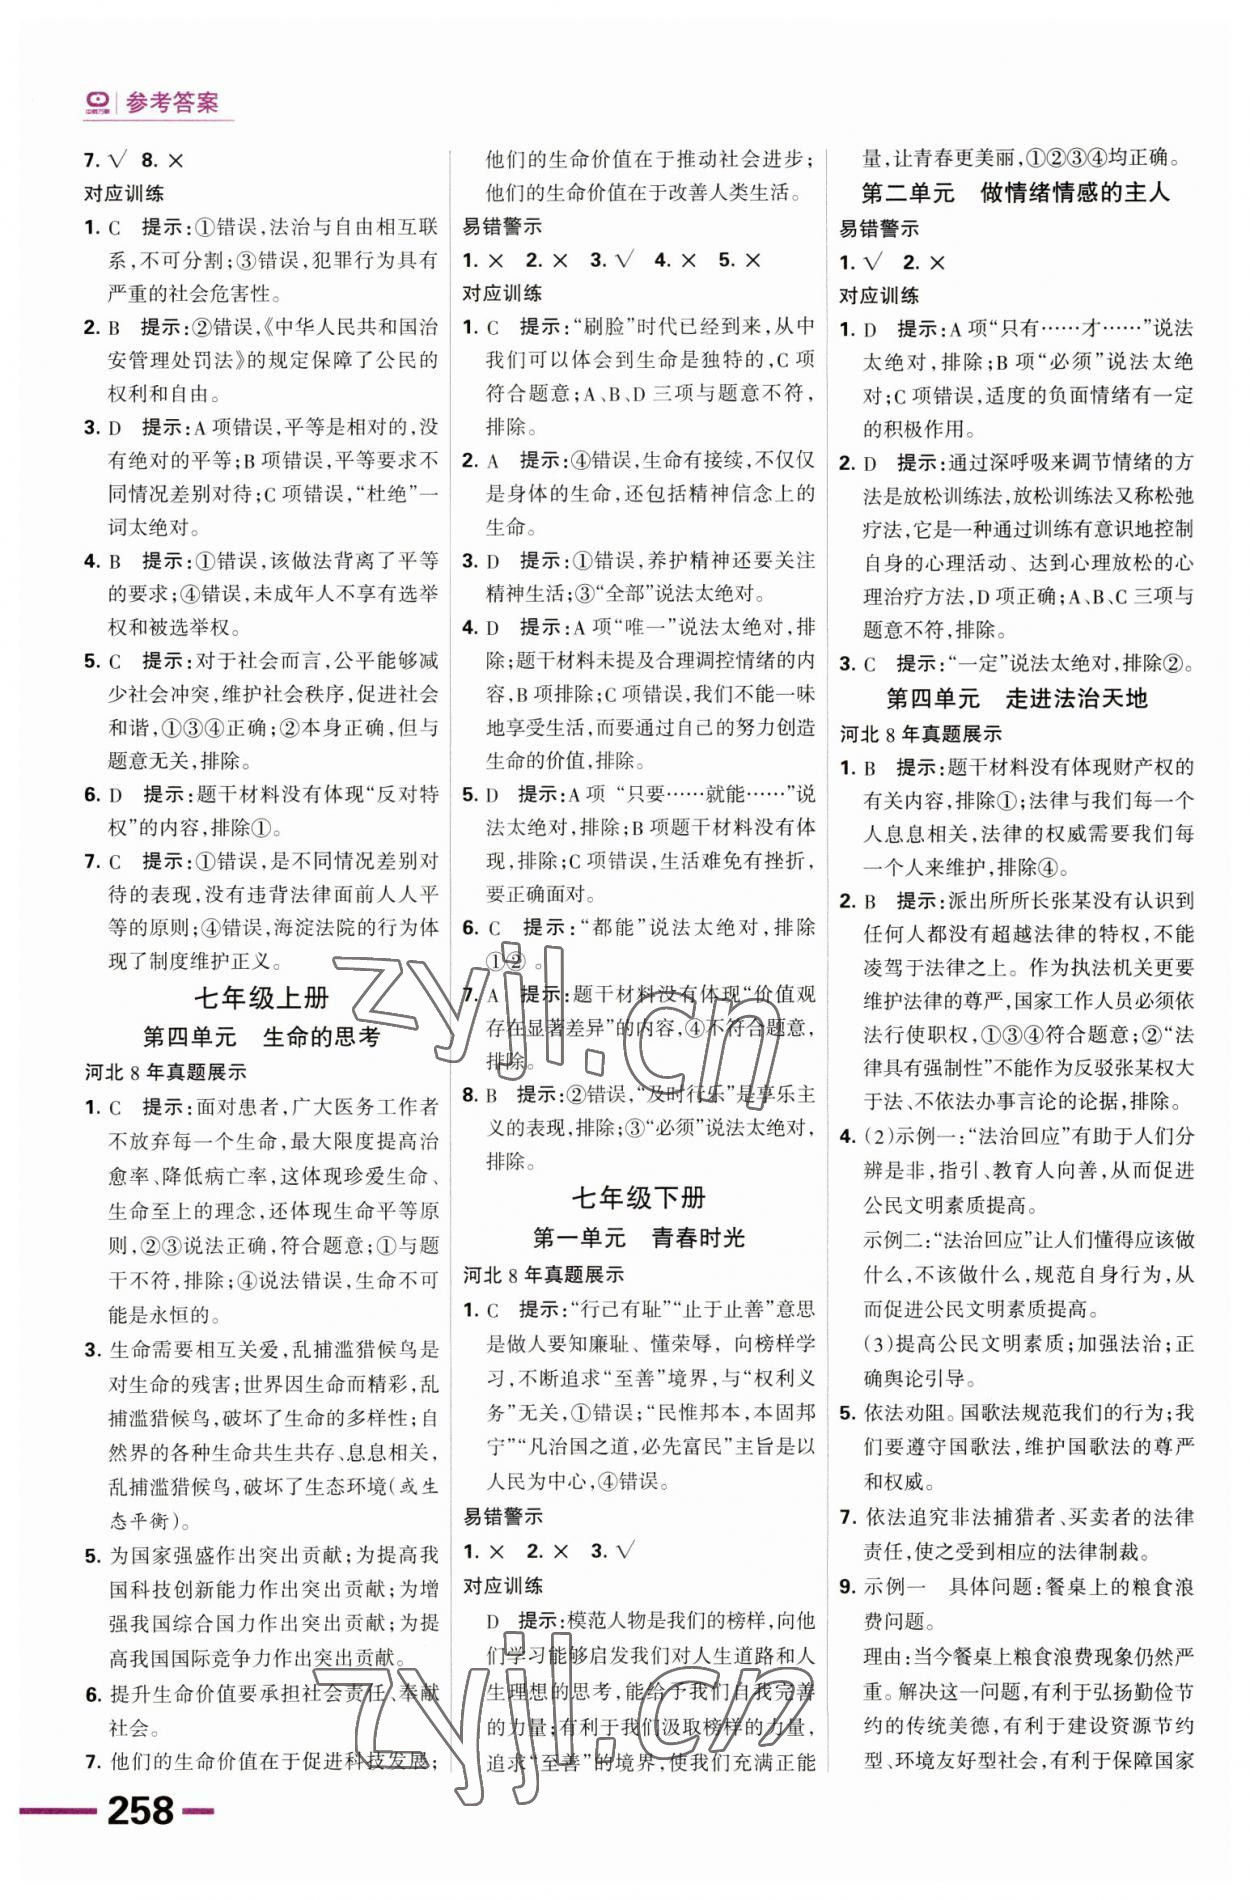 参考答案
7. √ 8. ×
对应训练
1. C 提示:①错误,法治与自由相互联
系,不可分割;③错误,犯罪行为具有
严重的社会危害性。
2. B 提示:②错误,《中华人民共和国治
安管理处罚法》的规定保障了公民的
权利和自由。
3. D 提示:A项错误,平等是相对的,没
有绝对的平等;B项错误,平等要求不
同情况差别对待;C项错误,“杜绝”一
词太绝对。
4. B 提示:①错误,该做法背离了平等
的要求;④错误,未成年人不享有选举
权和被选举权。
5. C 提示:对于社会而言,公平能够减
少社会冲突,维护社会秩序,促进社会
和谐,①③④正确;②本身正确,但与
题意无关,排除。
6. D 提示:题干材料没有体现“反对特
权”的内容,排除①。
7. C 提示:①错误,是不同情况差别对
待的表现,没有违背法律面前人人平
等的原则;④错误,海淀法院的行为体
现了制度维护正义。
七年级上册
第四单元 生命的思考
河北8年真题展示
1. C 提示:面对患者,广大医务工作者
不放弃每一个生命,最大限度提高治
愈率、降低病亡率,这体现珍爱生命、
生命至上的理念,还体现生命平等原
则,②③说法正确,符合题意;①与题
干不符,排除;④说法错误,生命不可
能是永恒的。
3. 生命需要相互关爱,乱捕滥猎候鸟是
对生命的残害;世界因生命而精彩,乱
捕滥猎候鸟,破坏了生命的多样性;自
然界的各种生命共生共存、息息相关,
乱捕滥猎候鸟,破坏了生态环境(或生
态平衡)。
5. 为国家强盛作出突出贡献;为提高我
国科技创新能力作出突出贡献;为增
强我国综合国力作出突出贡献;为提
高我国国际竞争力作出突出贡献。
6. 提升生命价值要承担社会责任,奉献
社会。
7. 他们的生命价值在于促进科技发展;
他们的生命价值在于推动社会进步;
他们的生命价值在于改善人类生活。
易错警示
1. × 2. × 3. √ 4. × 5. ×
对应训练
1. C 提示:“刷脸”时代已经到来,从中
我们可以体会到生命是独特的,C项
符合题意;A、B、D三项与题意不符,
排除。
2. A 提示:④错误,生命有接续,不仅仅
是身体的生命,还包括精神信念上的
生命。
3. D 提示:①错误,养护精神还要关注
精神生活;③“全部”说法太绝对。
4. D 提示:A项“唯一”说法太绝对,排
除;题干材料未提及合理调控情绪的内
容,B项排除;C项错误,我们不能一味
地享受生活,而要通过自己的努力创造
生命的价值,排除。
5. D 提示:A项 “只要……就能……”说
法太绝对,排除;B项题干材料没有体
现,排除;C项错误,生活难免有挫折,
要正确面对。
6. C 提示:“都能”说法太绝对,排除
①②。
7. A 提示:题干材料没有体现“价值观
存在显著差异”的内容,④不符合题意,
排除。
8. B 提示:②错误,“及时行乐”是享乐主
义的表现,排除;③“必须”说法太绝对,
排除。
七年级下册
第一单元 青春时光
河北8年真题展示
1. C 提示:“行己有耻”“止于至善”意思
是做人要知廉耻、懂荣辱,向榜样学
习,不断追求“至善”境界,与“权利义
务”无关,①错误;“民惟邦本,本固邦
宁”“凡治国之道,必先富民”主旨是以
人民为中心,④错误。
易错警示
1. × 2. × 3. √
对应训练
D 提示:模范人物是我们的榜样,向他
们学习能够启发我们对人生道路和人
生理想的思考,能给予我们自我完善
的力量;有利于我们汲取榜样的力量,
追求“至善”的境界,使我们充满正能
量,让青春更美丽,①②③④均正确。
第二单元 做情绪情感的主人
易错警示
1. √ 2. ×
对应训练
1. D 提示:A项“只有……才……”说法
太绝对,排除;B项“必须”说法太绝
对;C项错误,适度的负面情绪有一定
的积极作用。
2. D 提示:通过深呼吸来调节情绪的方
法是放松训练法,放松训练法又称松弛
疗法,它是一种通过训练有意识地控制
自身的心理活动、达到心理放松的心
理治疗方法,D项正确;A、B、C三项与
题意不符,排除。
3. C 提示:“一定”说法太绝对,排除②。
第四单元 走进法治天地
河北8年真题展示
1. B 提示:题干材料没有体现财产权的
有关内容,排除①;法律与我们每一个
人息息相关,法律的权威需要我们每
一个人来维护,排除④。
2. B 提示:派出所所长张某没有认识到
任何人都没有超越法律的特权,不能
凌驾于法律之上。作为执法机关更要
维护法律的尊严,国家工作人员必须依
法行使职权,①③④符合题意;②“法
律具有强制性”不能作为反驳张某权大
于法、不依法办事言论的论据,排除。
4. (2)示例一:“法治回应”有助于人们分
辨是非,指引、教育人向善,从而促进
公民文明素质提高。
示例二:“法治回应”让人们懂得应该做
什么,不该做什么,规范自身行为,从
而促进公民文明素质提高。
(3)提高公民文明素质;加强法治;正
确舆论引导。
5. 依法劝阻。国歌法规范我们的行为;我
们要遵守国歌法,维护国歌法的尊严
和权威。
7. 依法追究非法捕猎者、买卖者的法律
责任,使之受到相应的法律制裁。
9. 示例一 具体问题:餐桌上的粮食浪
费问题。
理由:当今餐桌上粮食浪费现象仍然严
重。解决这一问题,有利于弘扬勤俭节
约的传统美德,有利于建设资源节约
型、环境友好型社会,有利于保障国家
258
zyjl.cn
zyjl.cn